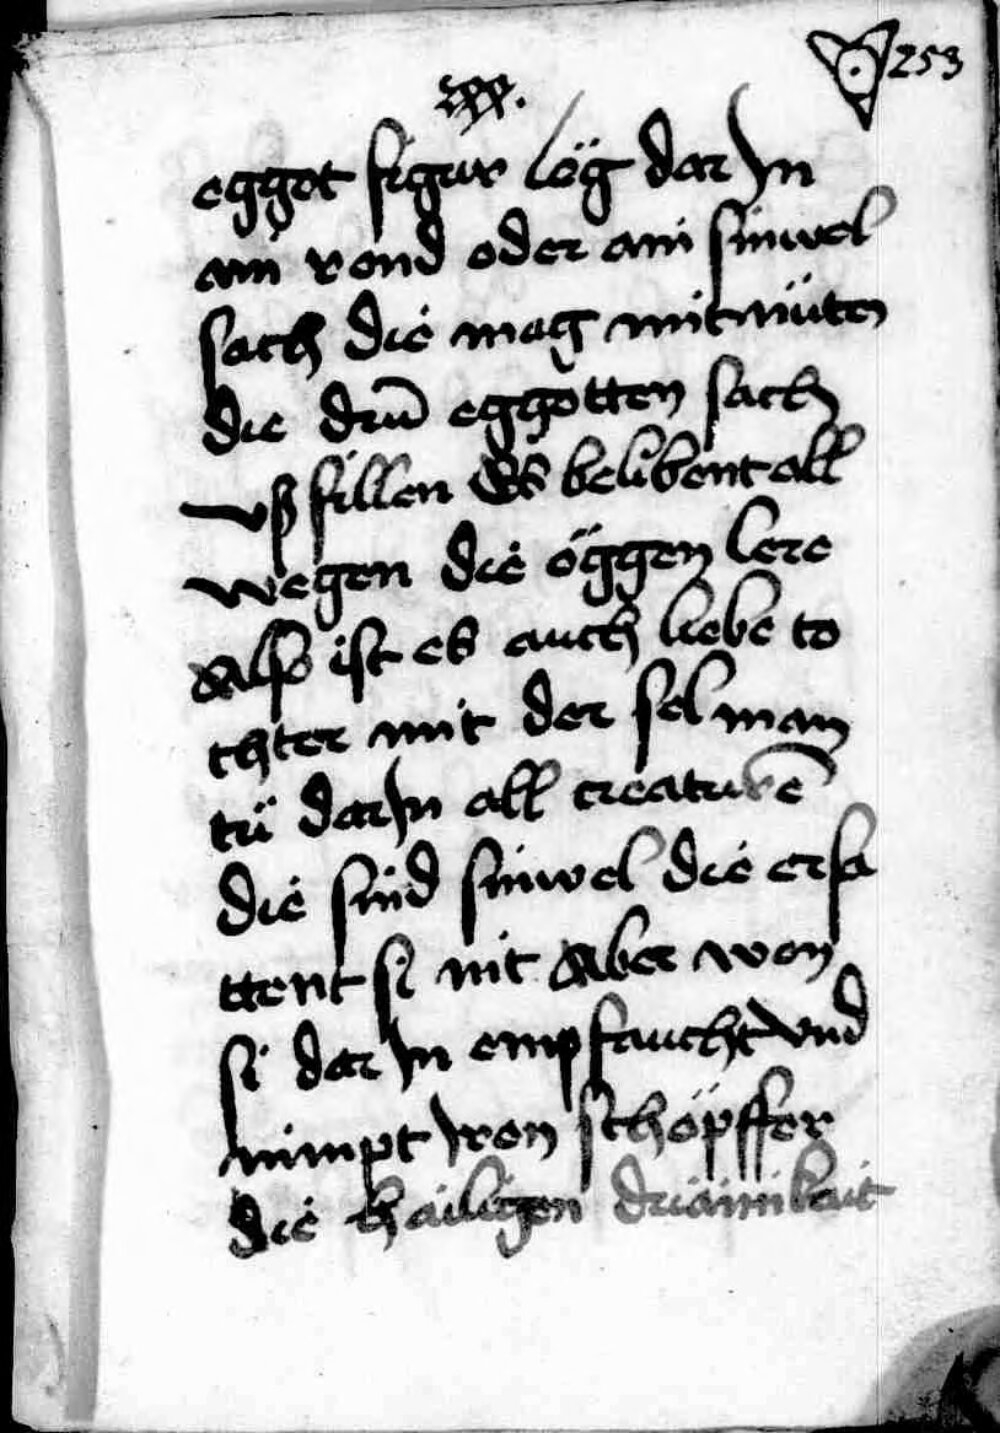 253
xxx.
eggot figur lög dar Jn
ain rond oder ain sinwel
sach die mag mit nüten
die drǖ eggotten sach
vß füllen Es belibent all
wegen die öggen lere
Also ist es auch liebe to
chter mit der sel man
tü dar Jn all creaturē
die sind sinwel die ersa
ttent si nit Aber wen
si dar Jn empfaucht vnd
nimpt Jren schöpffer
die hailigen driainikait